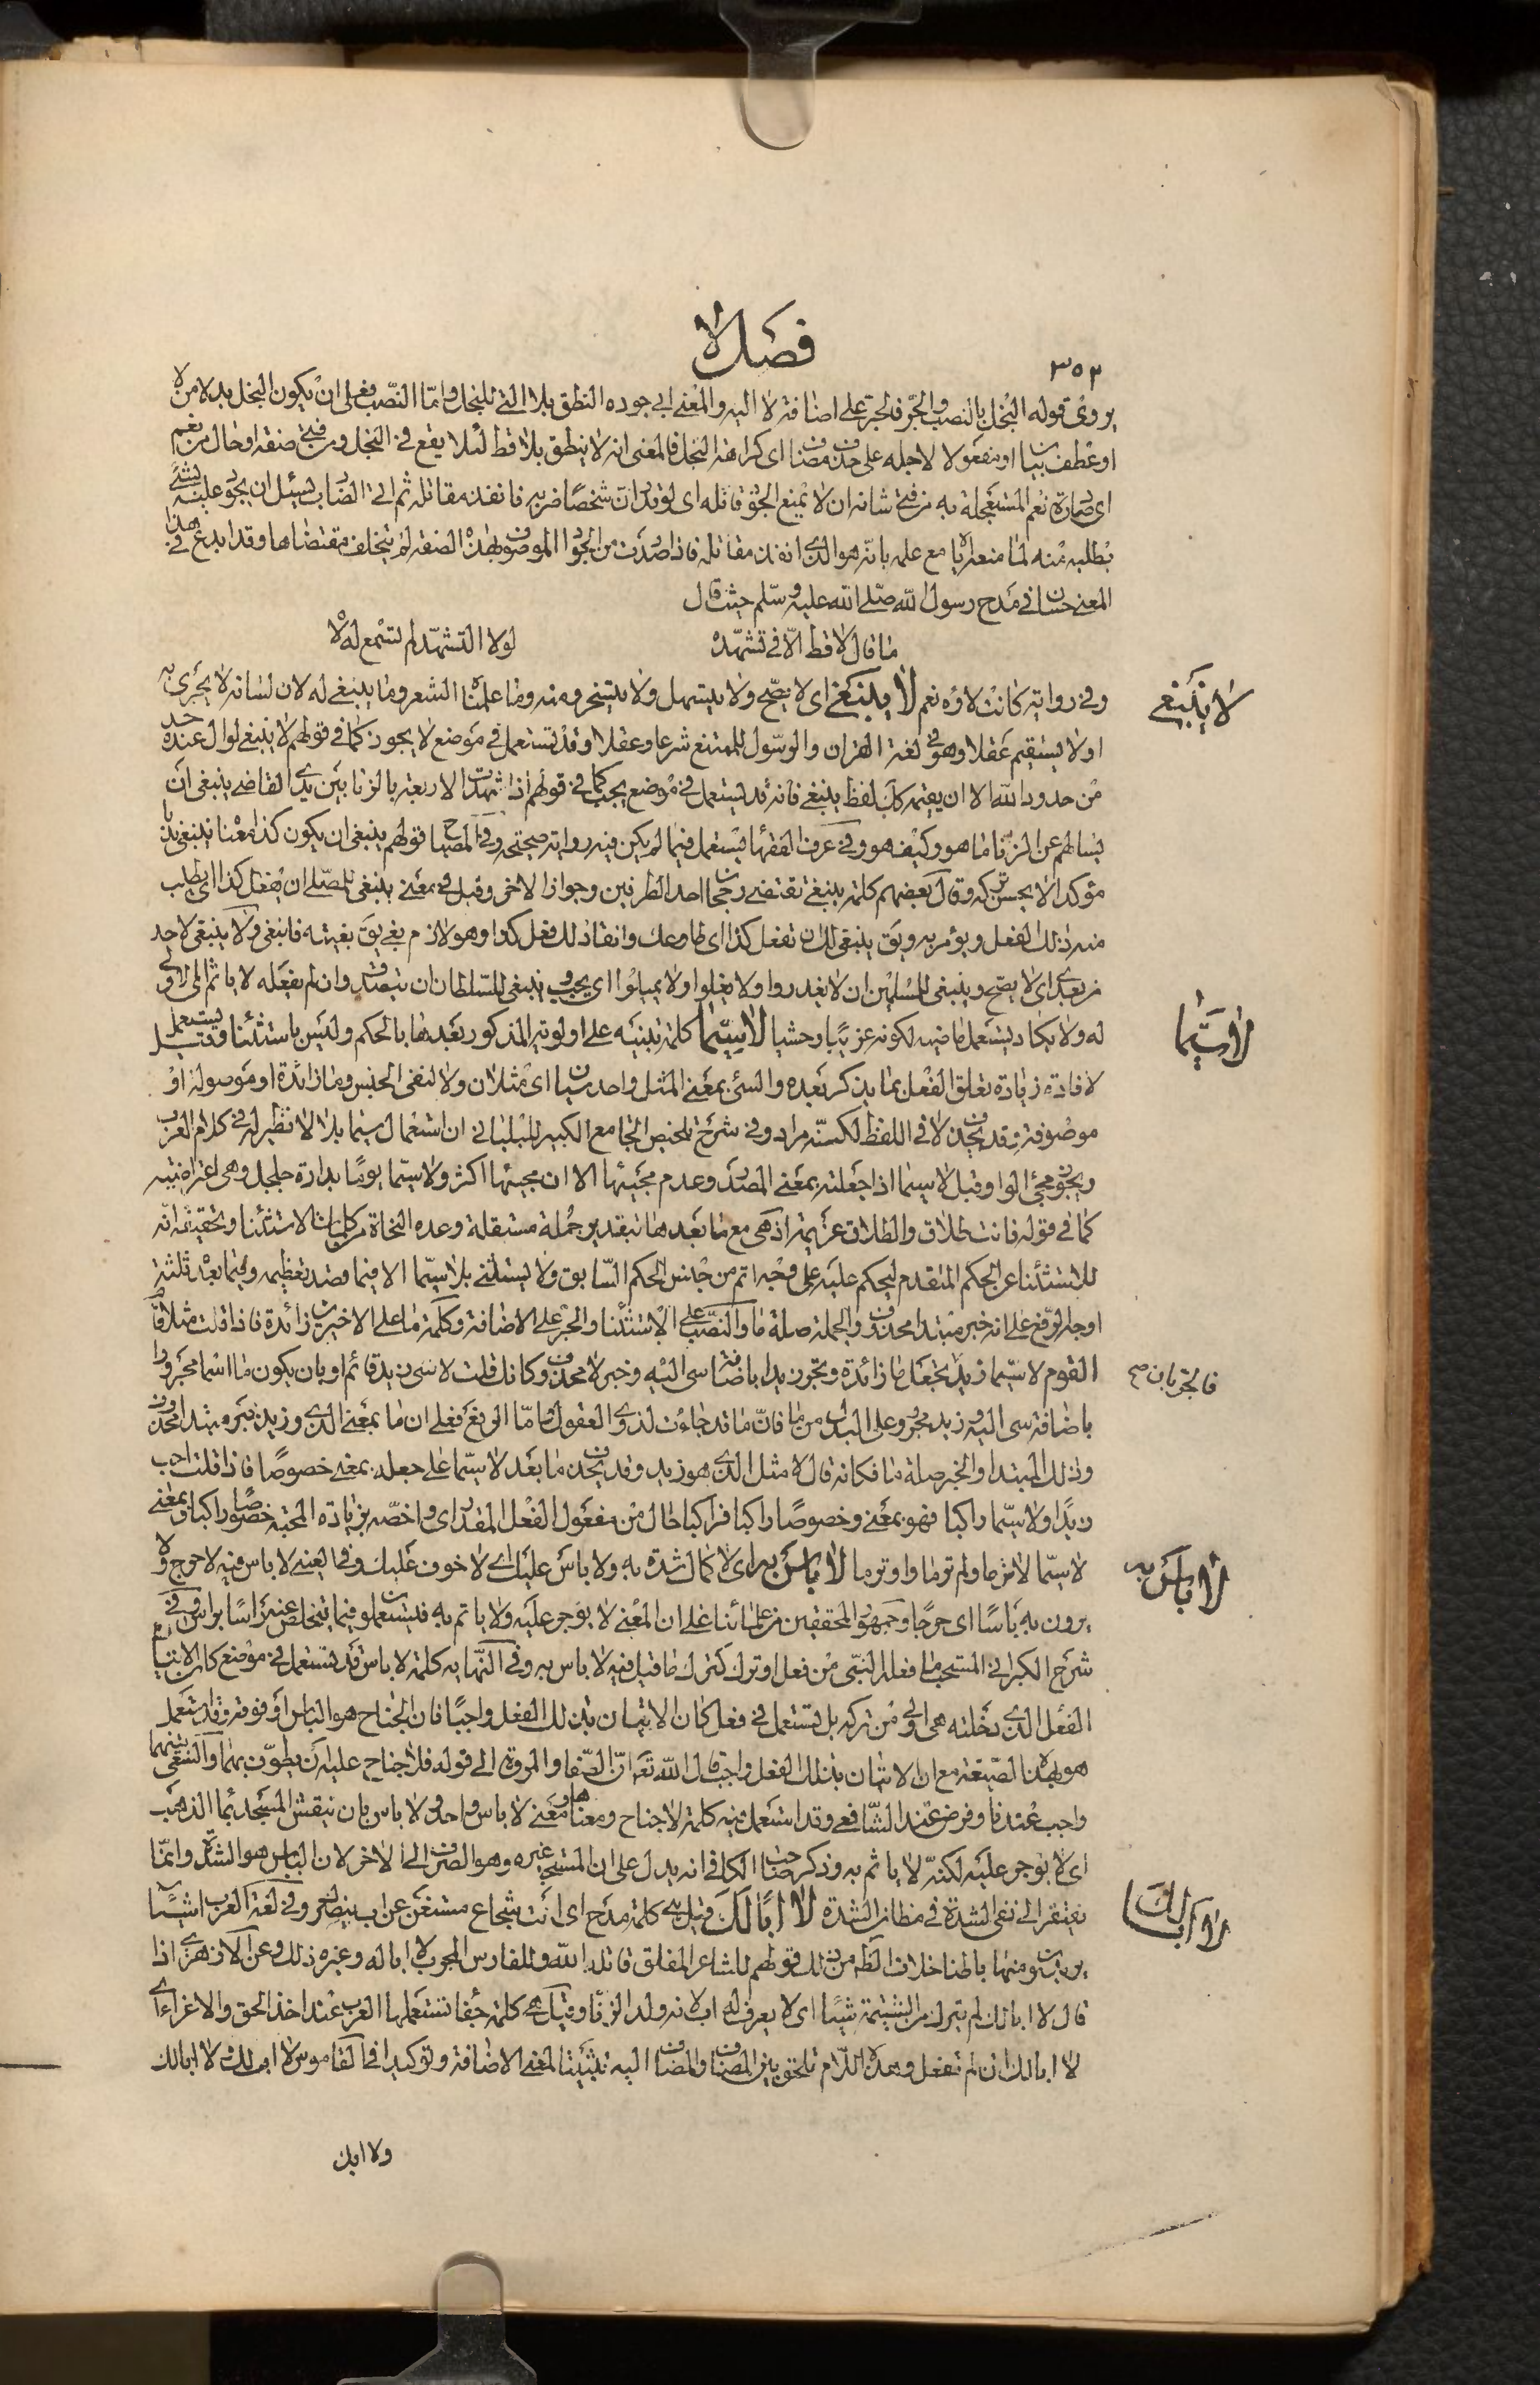 فصل لا
٣٥٢
يروى قوله البخل بالنصب والجر فالجر على اضافة لا اليه والمعنى ابى جوده النطق بلا التي للبخل واما النصب فعلى ان يكون البخل بدلا من لا
او عطف بيان او مفعولا لاجله على حذف مضاف اى كراهة البخل فالمعنى انه لا ينطق بلا قط لئلا يقع في البخل ومن فتى صفة او حال من نعم
اى صادرة نعم المستعجلة به من فتى شانه ان لا يمنع الجود قاتله اى لو قدر ان شخصا ضربه فانفذ مقاتله ثم اتى الضارب يسئل ان يجود عليه بشئ
يطلبه منه لما منعه اياه مع علمه بانه هو الذي انفذ مقاتله فاذا صدرت من الجواد الموصوف بهذه الصفة لم يتخلف مقتضاها وقد ابدع في هذا
المعنى حسان في مدح رسول الله صلى الله عليه وسلم حيث قال
ما قال لا قط الا في تشهده لولا التشهد لم تسمع له لا
وفي رواية كانت لاؤه نعم لا ينبغي اى لا يصح ولا يتسهل ولا يتسخر ومنه وما علمناه الشعر وما ينبغي له لان لسانه لا يجرى به
اولا يستقيم عقلا وهو في لغة القران والرسول للممتنع شرعا وعقلا وقد تستعمل في موضع لا يجوز كما في قولهم لا ينبغي لوال عنده حد
من حدود الله الا ان يقيمه كما ان لفظ ينبغي فانه قد يستعمل في موضع يجب كما في قولهم اذا شهدت الاربعة بالزنا بين يدى القاضي ينبغي ان
يسالهم عن الزنا ما هو وكيف هو وفي عرف الفقهاء يستعمل فيما لم يكن فيه رواية صحيحة وفي المصباح قولهم ينبغي ان يكون كذا معناه ينبغي ندبا
مؤكدا لا يحسن تركه وقال بعضهم كلمة ينبغي تقتضى رجحان احد الطرفين وجواز الاخر وقيل في معنى ينبغي للمصلي ان يفعل كذا اى يطلب
منه ذلك الفعل ويؤمر به ويق ينبغي لك ان تفعل كذا اى طاوعك وانقاد لك فعل كذا وهو لازم بغي يق بغيته فانبغى ولا ينبغي لاحد
من بعدى اى لا يصح وينبغي للمسلمين ان لا يغدروا ولا يغلوا ولا يمثلوا اى يجب وينبغي للسلطان ان يتصدق وان لم يفعله لا ياثم اى الاولى
له ولا يكاد يستعمل ماضيه لكونه غريبا وحشيا لا سيما كلمة تنبيه على اولوية المذكور بعدها بالحكم وليس باستثناء وقيل يستعمل
لافادة زيادة تعلق الفعل بما يذكر بعده والسئ بمعنى المثل واحد سيان اى مثلان ولا لنفي الجنس وما زائدة او موصولة او
موصوفة وقد يحذف لا في اللفظ لكنه مراد وفي شرح تلخيص الجامع الكبير للبلبانى ان استعمال سيما بلا لا لا نظير له في كلام العرب
ويجوز مجئ الواو قبل لا سيما اذا جعلته بمعنى المصدر وعدم مجيئها الا ان مجيئها اكثر ولا سيما يوما بدارة جلجل وهى اعتراضية
كما في قوله فانت طلاق والطلاق عزيمة اذ هى مع ما بعدها بتقدير جملة مستقلة وعده النحاة من كلمات الاستثناء وتحقيقه انه
للاستثناء عن الحكم المتقدم ليحكم عليه على وجه اتم من جنس الحكم السابق ولا يستثنى بلا سيما الا فيما قصد تعظيمه وفيما بعد ثلثة
اوجه الرفع على انه خبر مبتدا محذوف والجملة صلة ما والنصب على الاستثناء والجر على الاضافة وكلمة ما على الاخيرين زائدة فاذا قلت مثلا قام
القوم لا سيما زيد تجعل ما زائدة وتجر زيدا باضافة سى اليه وخبر لا محذوف وكانك قلت لا سى زيد قائم او بان يكون ما اسما مجرورا
باضافة سى اليه وزيد مجرور على البدل من ما فان ما قد جاءت لذوى العقول واما الرفع فعلى ان ما بمعنى الذى وزيد خبر مبتدا محذوف
وذلك المبتدا والخبر صلة ما فكانه قال لا مثل الذى هو زيد وقد يحذف ما بعد لا سيما على جعله بمعنى خصوصا فاذا قلت احب
زيدا ولا سيما راكبا فهو بمعنى وخصوصا راكبا فراكبا حال من مفعول الفعل المقدر اى واخصه بزيادة المحبة خصوصا راكبا وبمعنى
لا سيما لا تر ما ولم تر ما واو تر ما لا باس به اى لا كمال شدة به ولا باس عليك اى لا خوف عليك وفي العينى لا باس فيه لا حرج ولا
يرون به باسا اى حرجا وجمهور المحققين من علمائنا على ان المعنى لا يؤجر عليه ولا ياثم به فيستعملو فيما يتخلص عنه راسا براس وفي
شرح الكبرانى المستحب ما فعله النبى من فعل او ترك كترك ما قيل فيه لا باس به وفي النهاية كلمة لا باس قد تستعمل في موضع كان الاتيان
الفعل الذى دخلته هى اولى من تركه بل تستعمل في فعل كان الاتيان بذلك الفعل واجبا فان الجناح هو الباس او فوقه وقد استعمل
هو بهذه الصيغة مع ان الاتيان بذلك الفعل واجب قال الله تع ان الصفا والمروة الى قوله فلا جناح عليه ان يطوف بهما والسعى بينهما
واجب عندنا وفرض عند الشافعى وقد استعمل فيه كلمة لا جناح ومعناها ومعنى لا باس واحد ولا باس بان ينقش المسجد بماء الذهب
اى لا يؤجر عليه لكنه لا ياثم به وذكر صاحب الكافى انه يدل على ان المستحب غيره وهو الصرف الى الاخر لان الباس هو الشدة وانما
يفتقر الى نفى الشدة في مظان الشدة لا ابا لك قيل هى كلمة مدح اى انت شجاع مستغن عن اب ينصرك وفي لغة العرب اشياء
يريدون منها باطنا خلاف الظاهر من ذلك قولهم للشاعر المفلق قاتله الله وللفارس المجرب لا ابا له وغيره ذلك وعن الازهرى اذا
قال لا ابا لك لم يترك من الشتيمة شيئا اى لا يعرف له اب لانه ولد الزنا وقيل هى كلمة جفاء تستعملها العرب عند اخذ الحق والاغراء اى
لا ابا لك ان لم تفعل وهذه اللام تلحق بين المضاف والمضاف اليه تثبيتا لمعنى الاضافة وتوكيدا في القاموس لا اب لك ولا ابا لك
ولا ابك
لا ينبغي
لا سيما
فالجر بان صح
لا باس به
لا ابا لك